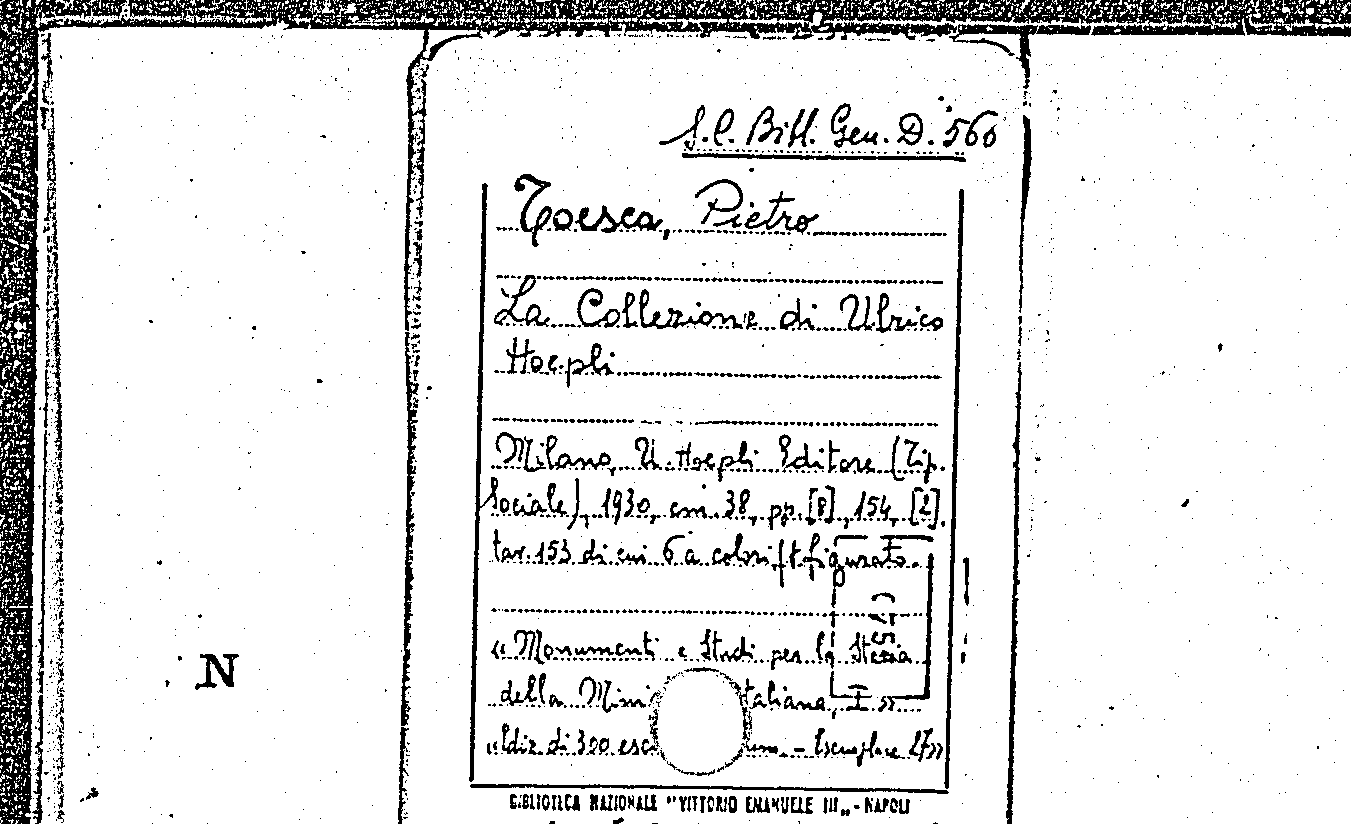 S.C. Bibl. Gen. D. 560
Toesca, Pietro
La Collezione di Ulrico
Hoepli
Milano, U. Hoepli Editore (Tip.
Sociale), 1930, cm. 38, pp. [8], 154, [2].
tav. 153 di cui 6 a colori f.t. figurato.
« Monumenti e Studi per la Storia
della Mini taliana, I »
«Ediz. di 300 num. - Esemplare 27»
N
BIBLIOTECA NAZIONALE "VITTORIO EMANUELE III„ - NAPOLI